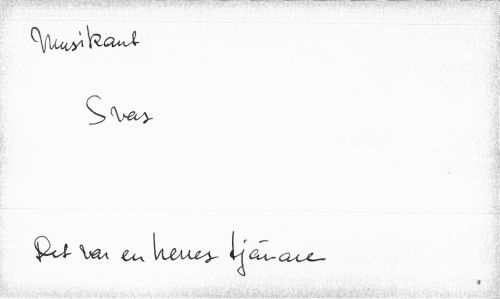 Musikant
Svar
Det var en herres tjänare